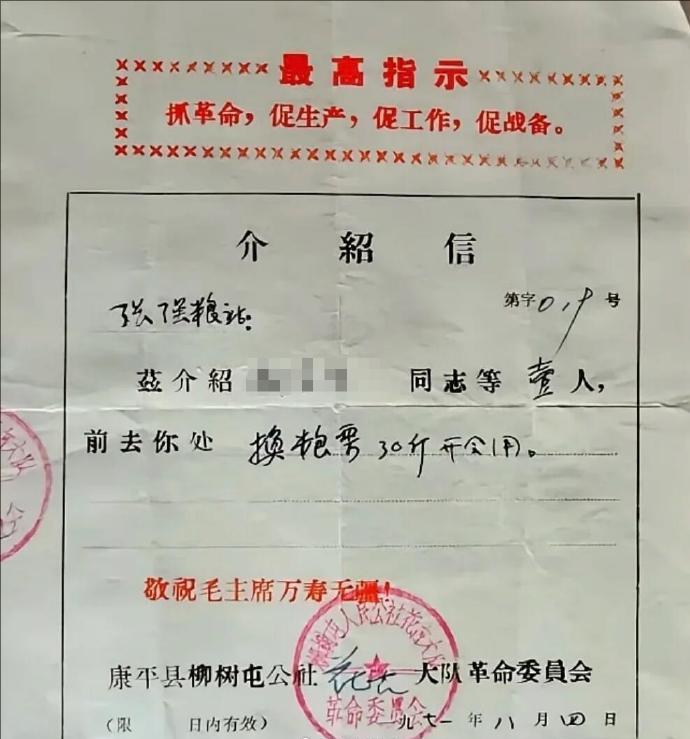 最高指示
抓革命，促生产，促工作，促战备。
介紹信
第字0.9号
张强粮站：
茲介紹 同志等壹人，
前去你处 换粮票30斤开会用。
敬祝毛主席万寿无疆！
康平县柳树屯公社 大队革命委員会
（限 日内有效） 一九七一年八月四日
革命委员会